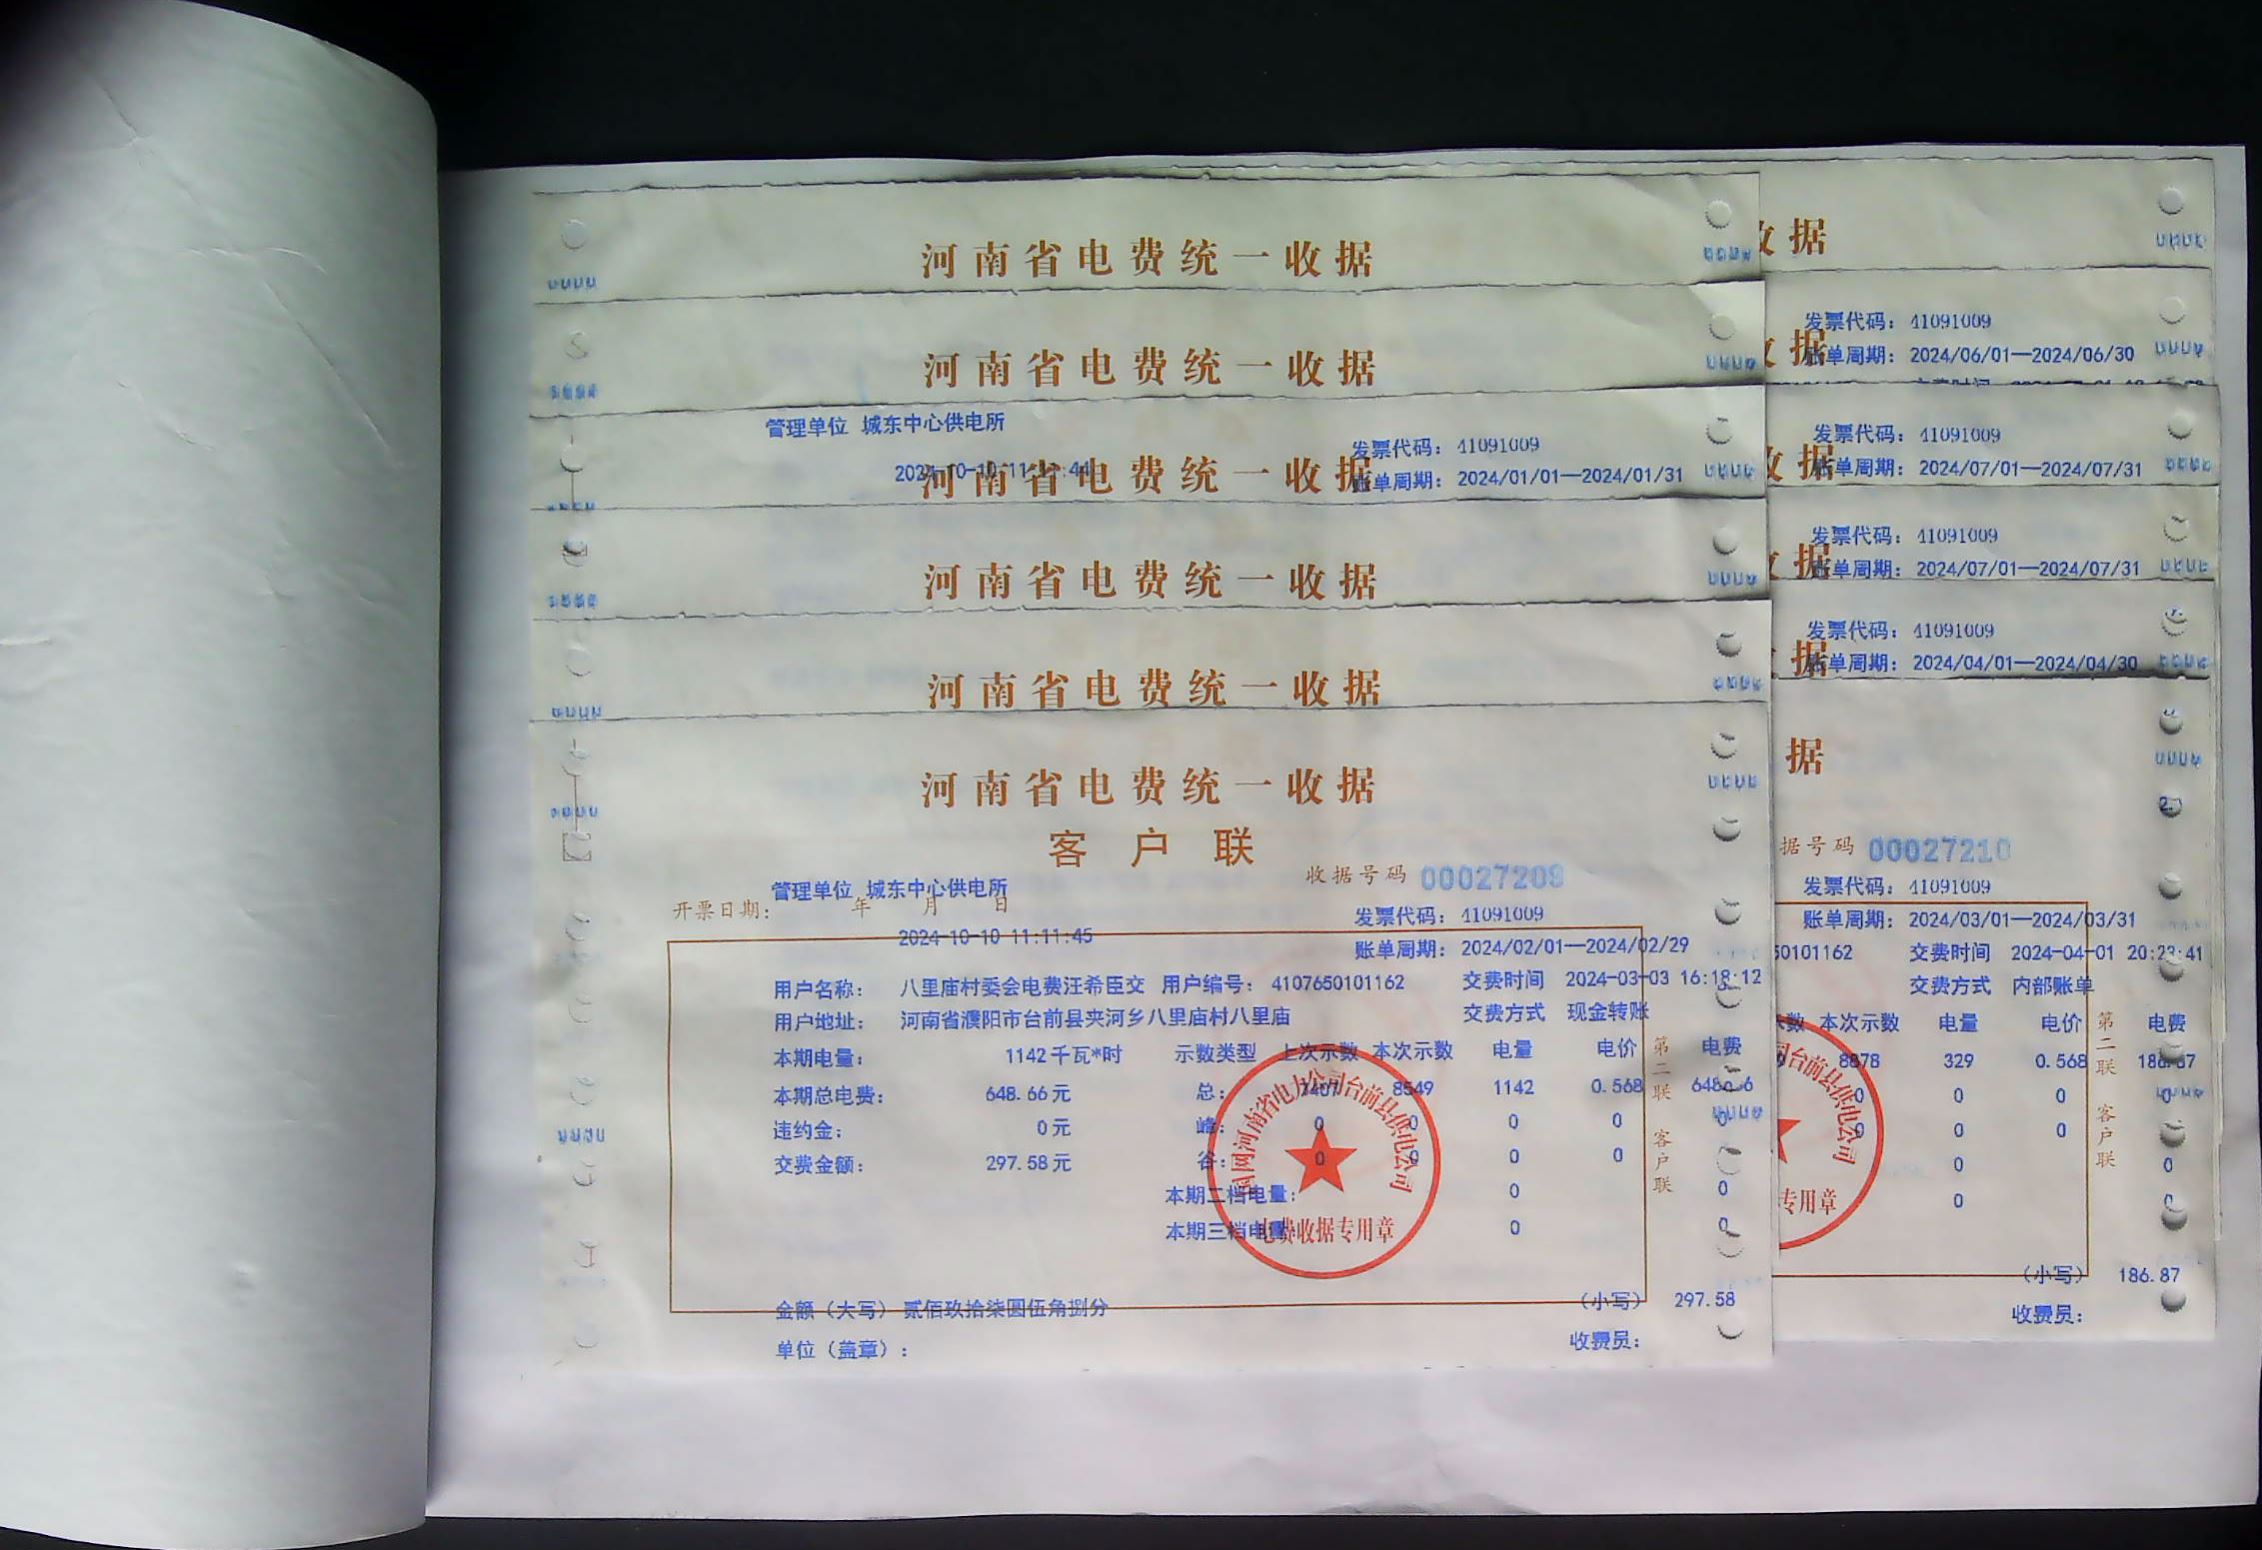 河南省电费统一收据
河南省电费统一收据
管理单位 城东中心供电所
发票代码: 41091009
河南省电费统一收据
账单周期: 2024/01/01—2024/01/31
河南省电费统一收据
河南省电费统一收据
河南省电费统一收据
客户联
收据号码 00027209
管理单位 城东中心供电所
开票日期: 年 月 日
发票代码: 41091009
2024-10-10 11:11:45
账单周期: 2024/02/01—2024/02/29
用户名称: 八里庙村委会电费汪希臣交 用户编号: 4107650101162 交费时间 2024-03-03 16:18:12
用户地址: 河南省濮阳市台前县夹河乡八里庙村八里庙 交费方式 现金转账
本期电量: 1142千瓦*时 示数类型 上次示数 本次示数 电量 电价 电费
本期总电费: 648.66元 总: 7407 8549 1142 0.568 648.66
违约金: 0元 峰: 0 0 0 0 0
交费金额: 297.58元 谷: 0 0 0 0
本期二档电量: 0 0
本期三档电量: 0 0
第二联 客户联
国网河南省电力公司台前县供电公司
电费收据专用章
金额(大写) 贰佰玖拾柒圆伍角捌分 (小写) 297.58
单位(盖章): 收费员:
据
发票代码: 41091009
据
账单周期: 2024/06/01—2024/06/30
发票代码: 41091009
据
账单周期: 2024/07/01—2024/07/31
发票代码: 41091009
据
账单周期: 2024/07/01—2024/07/31
发票代码: 41091009
据
账单周期: 2024/04/01—2024/04/30
据
据号码 00027210
发票代码: 41091009
账单周期: 2024/03/01—2024/03/31
50101162 交费时间 2024-04-01 20:23:41
交费方式 内部账单
示数 本次示数 电量 电价 电费
8878 329 0.568 186.87
0 0 0 0
0 0 0
0 0
0 0
第二联 客户联
台前县供电公司
专用章
(小写) 186.87
收费员: